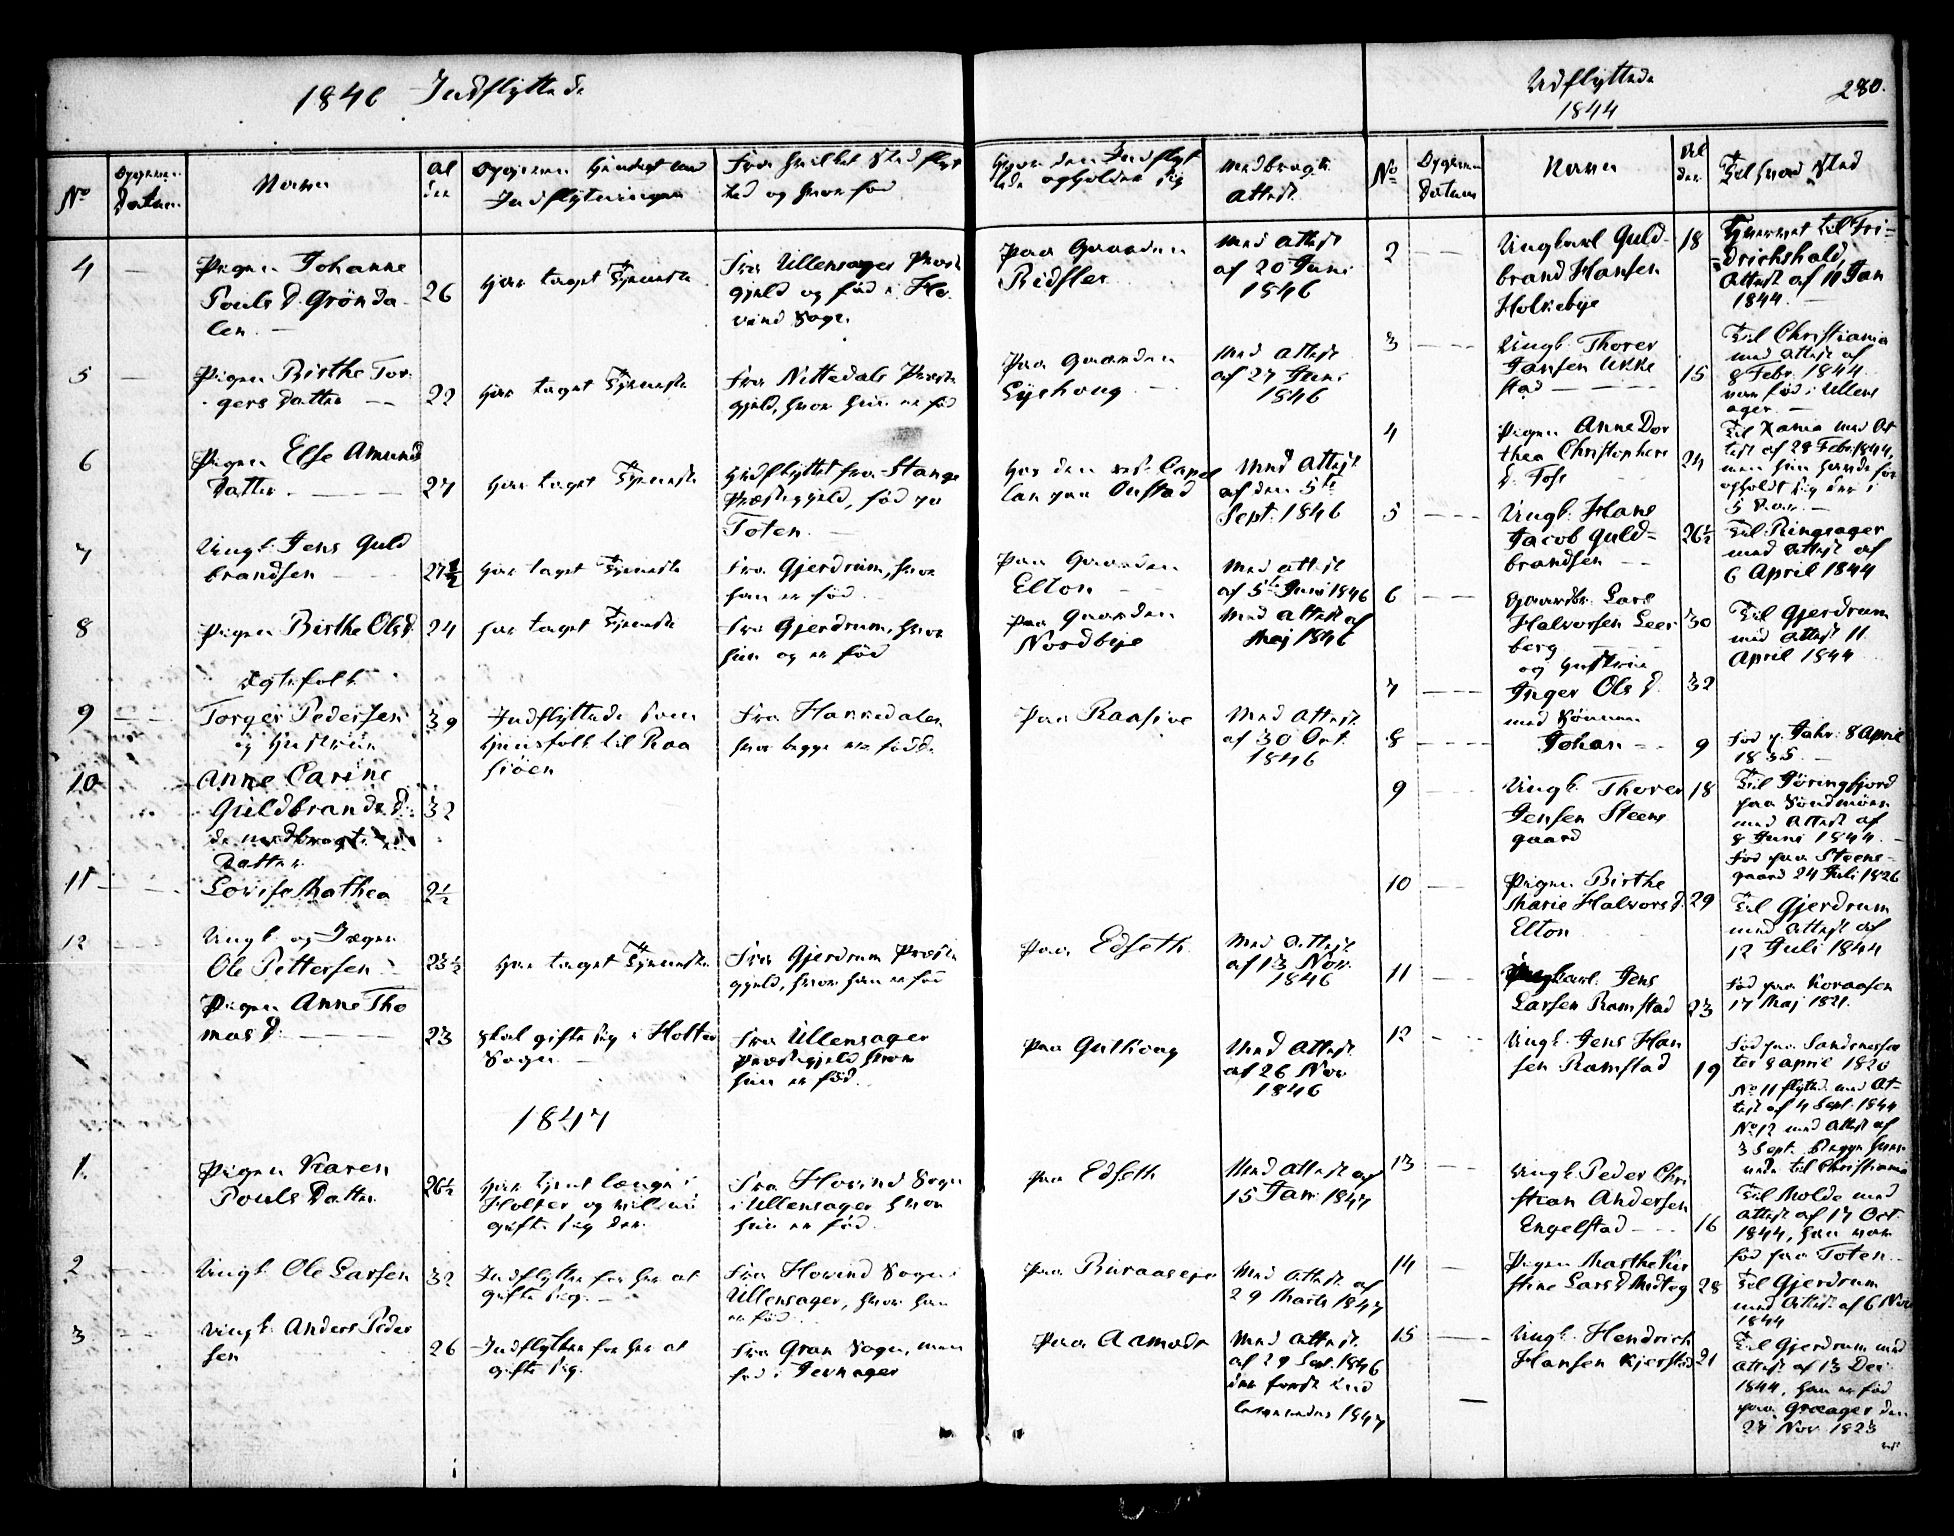 1846 Indflyttede
Udflyttede
1844
280.
No
Datum
Navn
Al
der
Indflytningen
Fra hvilket Sted flyt
ted og hvor fød
Hvor den Indflyt
tede opholder sig
medbragte
Attest
No
Datum
Navn
Al
der
Til hvad Sted
4
Pigen Johanne
Pouls D. Grønda
len
26
har taget Tjeneste
fra Ullensager Præste
gjeld og fød i Ho
vind Sogn
paa Gaarden
Risfler
med Attest
af 20 Juni
1846
5
Pigen Birthe Tor
gersdatter
22
har taget Tjeneste
fra Nittedals Præste
gjeld, hvor hun er fød
paa Gaarden
Eyshoug
med Attest
af 27 Juni
1846
6
Pigen Else Amunds
datter
27
har taget Tjeneste
Hidflyttet fra Stange
Præstegjeld, fød paa
Toten
Hos den res. Capel
lan paa Onstad
Med Attest
af den 5te
Sept. 1846
7
Ungk. Jens Guld
brandsen
27½
har taget Tjeneste
fra Gjerdrum, hvor
han er fød
paa Gaarden
Elton
Med Attest
af 5te Juni 1846
8
Pigen Birthe Olsd.
24
har taget Tjeneste
fra Gjerdrum, hvor
hun og er fød
paa Gaarden
Nordbye
Med Attest af
Maj 1846
Ægtefolk
9
Torger Pedersen
og Hustrue
39
Indflyttede som
Huusfolk til Raa
siøen
fra Hannedalen
hvor begge ere fødde
paa Raasioe
Med Attest
af 30 Oct.
1846
10
Anne Carine
Guldbrandsd.
32
de medbragte en
Datter
11
Lovise Mathea
2½
12
Ungk. og Jæger
Ole Pettersen
23½
har taget Tjeneste
fra Gjerdrum Præste
gjeld, hvor han er fød
paa Edseth
Med Attest
af 13 Nov.
1846
Pigen Anne Tho
mas D.
23
skal gifte sig i Holter
Sogn
fra Ullensager
Præstegjeld hvor
hun er fød
paa Guthoug
Med Attest
af 26 Nov
1846
1847
1.
Pigen Karen
Pouls Datter
26½
har tjent længe i
Holter og vil nu
gifte sig der
fra Hovind Sogn
i Ullensager hvor
hun er fød
paa Edseth
Med Attest af
15 Jan: 1847
2
Ungk. Ole Larsen
32
Indflytter for her at
gifte sig
fra Hovind Sogn i
Ullensager, hvor han
er fød
paa Buraaseje
Med Attest af
29 Marts 1847
3
Ungk. Anders Peder
sen
26
Indflytter for her at
gifte sig.
fra Gran Sogn, men
fød i Jevnager
paa Aamodt
Med Attest
af 29 Sept. 1846
der først ind
leveredes 1847
2
Ungkarl Guld
brand Hansen
Holsebye
18
Hjemmet til Fri-
drichshald,
Attest af 11 Jan
1844.
3
Ungk. Thorer
Jansen Ukke
stad
15
Til Christiania
med Attest af
8 Febr. 1844
var fød i Ullens
ager.
4
Pigen Anne Dor
thea Christophers
D. Foss
24
Til Nania med At
test af 28 Febr. 1844,
men hun havde for
opholdt sig der i
5
Ungk. Hans
Jacob Guld=
brandsen
26½
Til Ringsager
med Attest af
6 April 1844
6
Gaardbr. Lars
Halvorsen Leer
berg
og Hustrue
30
Til Gjerdrum
med Attest 11
April 1844
7
Inger Ols D.
med Sønnen
32
8
Johan
9
fød 8 April
1835.
9
Ungk. Thorer
Jensen Steens
gaard
18
Til Jøringfjord
paa Søndmøer
med Attest af
8 Juni 1844
fød paa Steens-
gaard 24 Juli 1826
10
Pigen Birthe
Marie Halvorsd.
Elton
29
Til Gjerdrum
med Attest af
12 Juli 1844
11
Ungkarl Jens
Larsen Ramstad
23
fød paa Koraasen
17 Maj 1821.
12
Ungk. Jens Han
sen Ramstad
19
fød paa Sandnessæ
ter 9 April 1825
No 11 flytted med At=
test af 4 Sept. 1844
No 12 med Attest af
3 Sept. begge hen
til Christiania
13
Ungk. Peder Chri
stian Andersen
Engelstad
16
Til Molde med
Attest af 17 Oct.
1844, han var
fød paa Toten
14
Pigen Marthe Kir
stine Lars D. Midteg
28
Til Gjerdrum
med Attest af 6 Nov
1844
15
Ungk. Hendrich
Hansen Kjerstad
21
Til Gjerdrum med
Attest af 13 Dec.
1844, han er fød
paa Græager den
24 Nov 1823